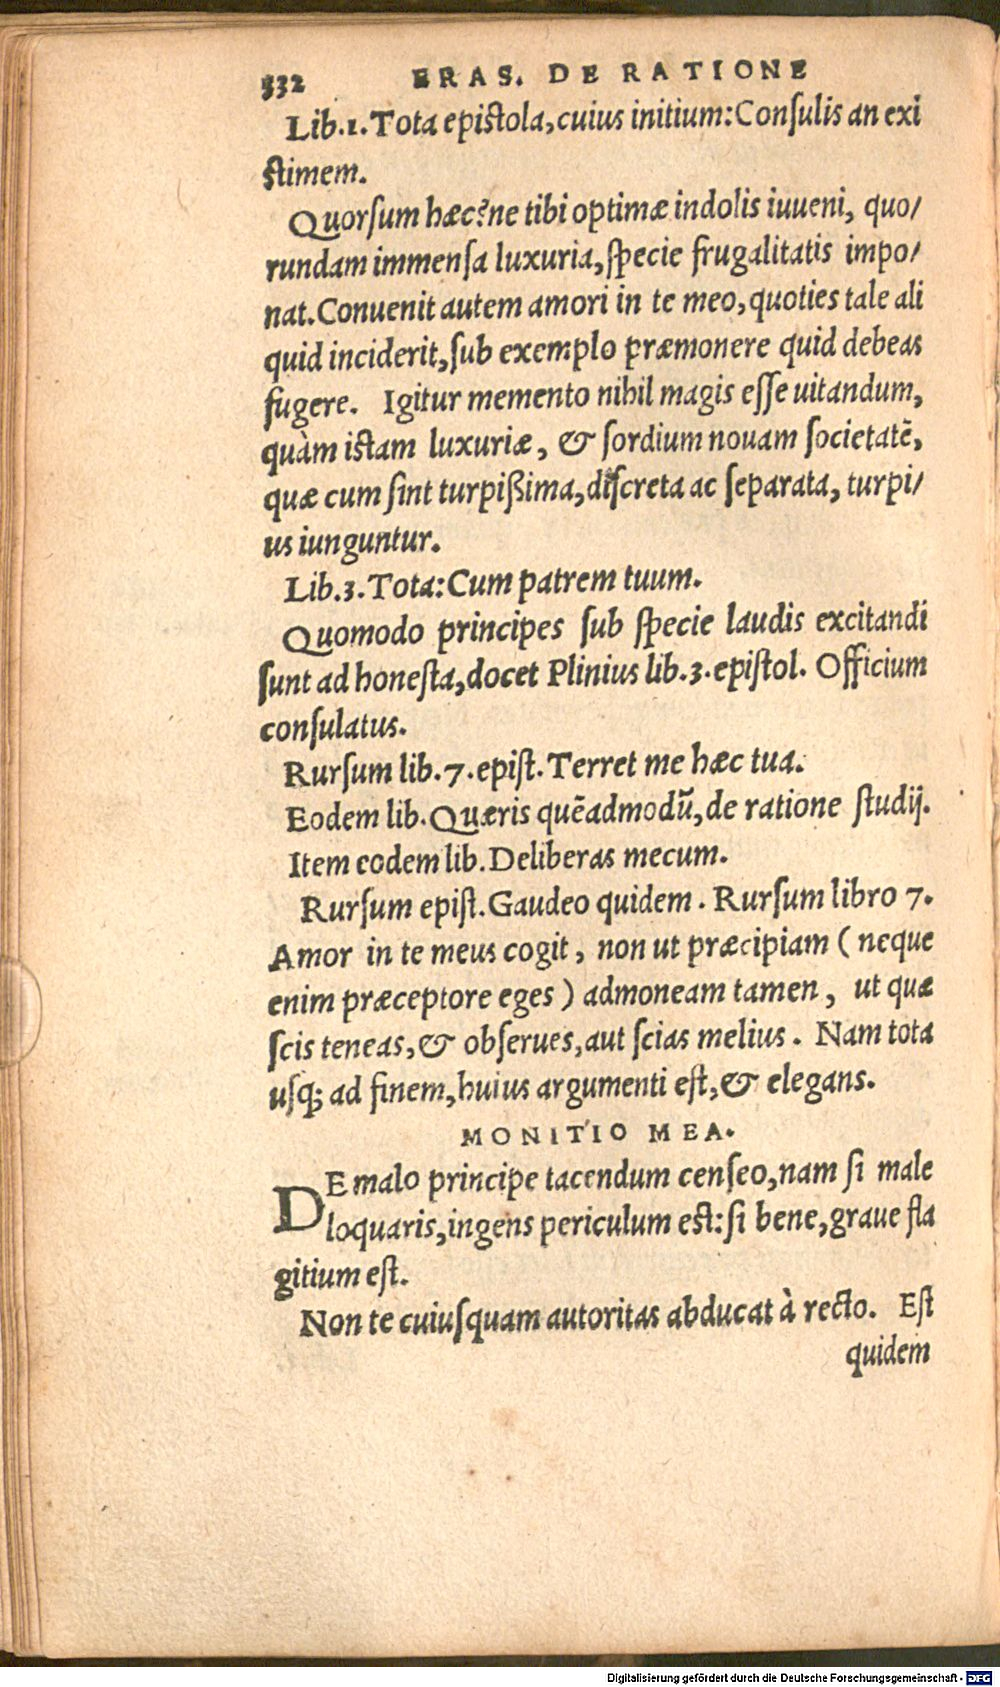 332 ERAS. DE RATIONE
Lib.1. Tota epistola, cuius initium: Consulis an exi
stimem.
Quorsum hæc? ne tibi optimæ indolis iuueni, quo/
rundam immensa luxuria, specie frugalitatis impo/
nat. Conuenit autem amori in te meo, quoties tale ali
quid inciderit, sub exemplo præmonere quid debeas
fugere. Igitur memento nihil magis esse uitandum,
quàm istam luxuriæ, & sordium nouam societatē,
quæ cum sint turpißima, discreta ac separata, turpi/
us iunguntur.
Lib.3. Tota: Cum patrem tuum.
Quomodo principes sub specie laudis excitandi
sunt ad honesta, docet Plinius lib.3. epistol. Officium
consulatus.
Rursum lib.7. epist. Terret me hæc tua.
Eodem lib. Quæris quēadmodū, de ratione studij.
Item eodem lib. Deliberas mecum.
Rursum epist. Gaudeo quidem. Rursum libro 7.
Amor in te meus cogit, non ut præcipiam (neque
enim præceptore eges) admoneam tamen, ut quæ
scis teneas, & obserues, aut scias melius. Nam tota
usq; ad finem, huius argumenti est, & elegans.
MONITIO MEA.
DE malo principe tacendum censeo, nam si male
loquaris, ingens periculum est: si bene, graue fla
gitium est.
Non te cuiusquam autoritas abducat à recto. Est
quidem
Digitalisierung gefördert durch die Deutsche Forschungsgemeinschaft - DFG